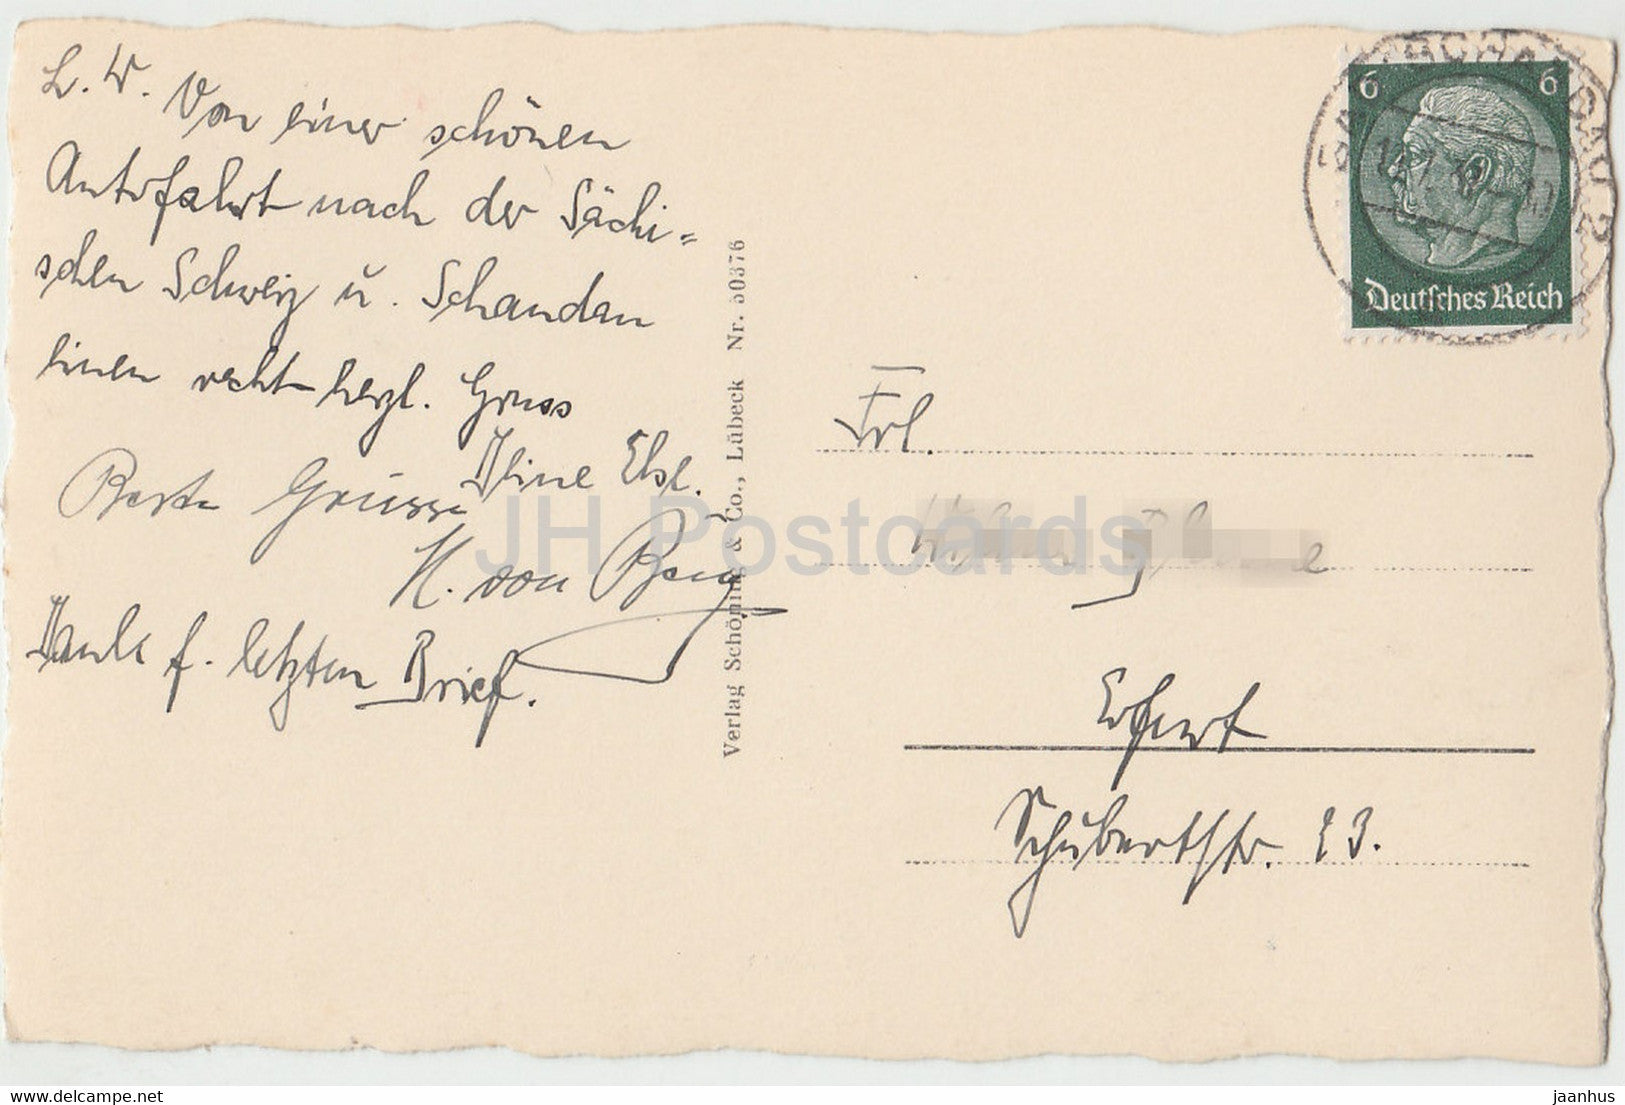 L. W. Von einer schönen
Autofahrt nach der Sächsi=
schen Schweiz u. Schandau
einen recht herzl. Gruss
Deine Else.
Beste Grüsse
H. von Berg
Danke f. letzten Brief.
Verlag Schöning & Co., Lübeck Nr. 50376
6 6
Deutsches Reich
Frl.
Erfurt
Schubertstr. 23.
JH Postcards
delcampe.net
jaanhus